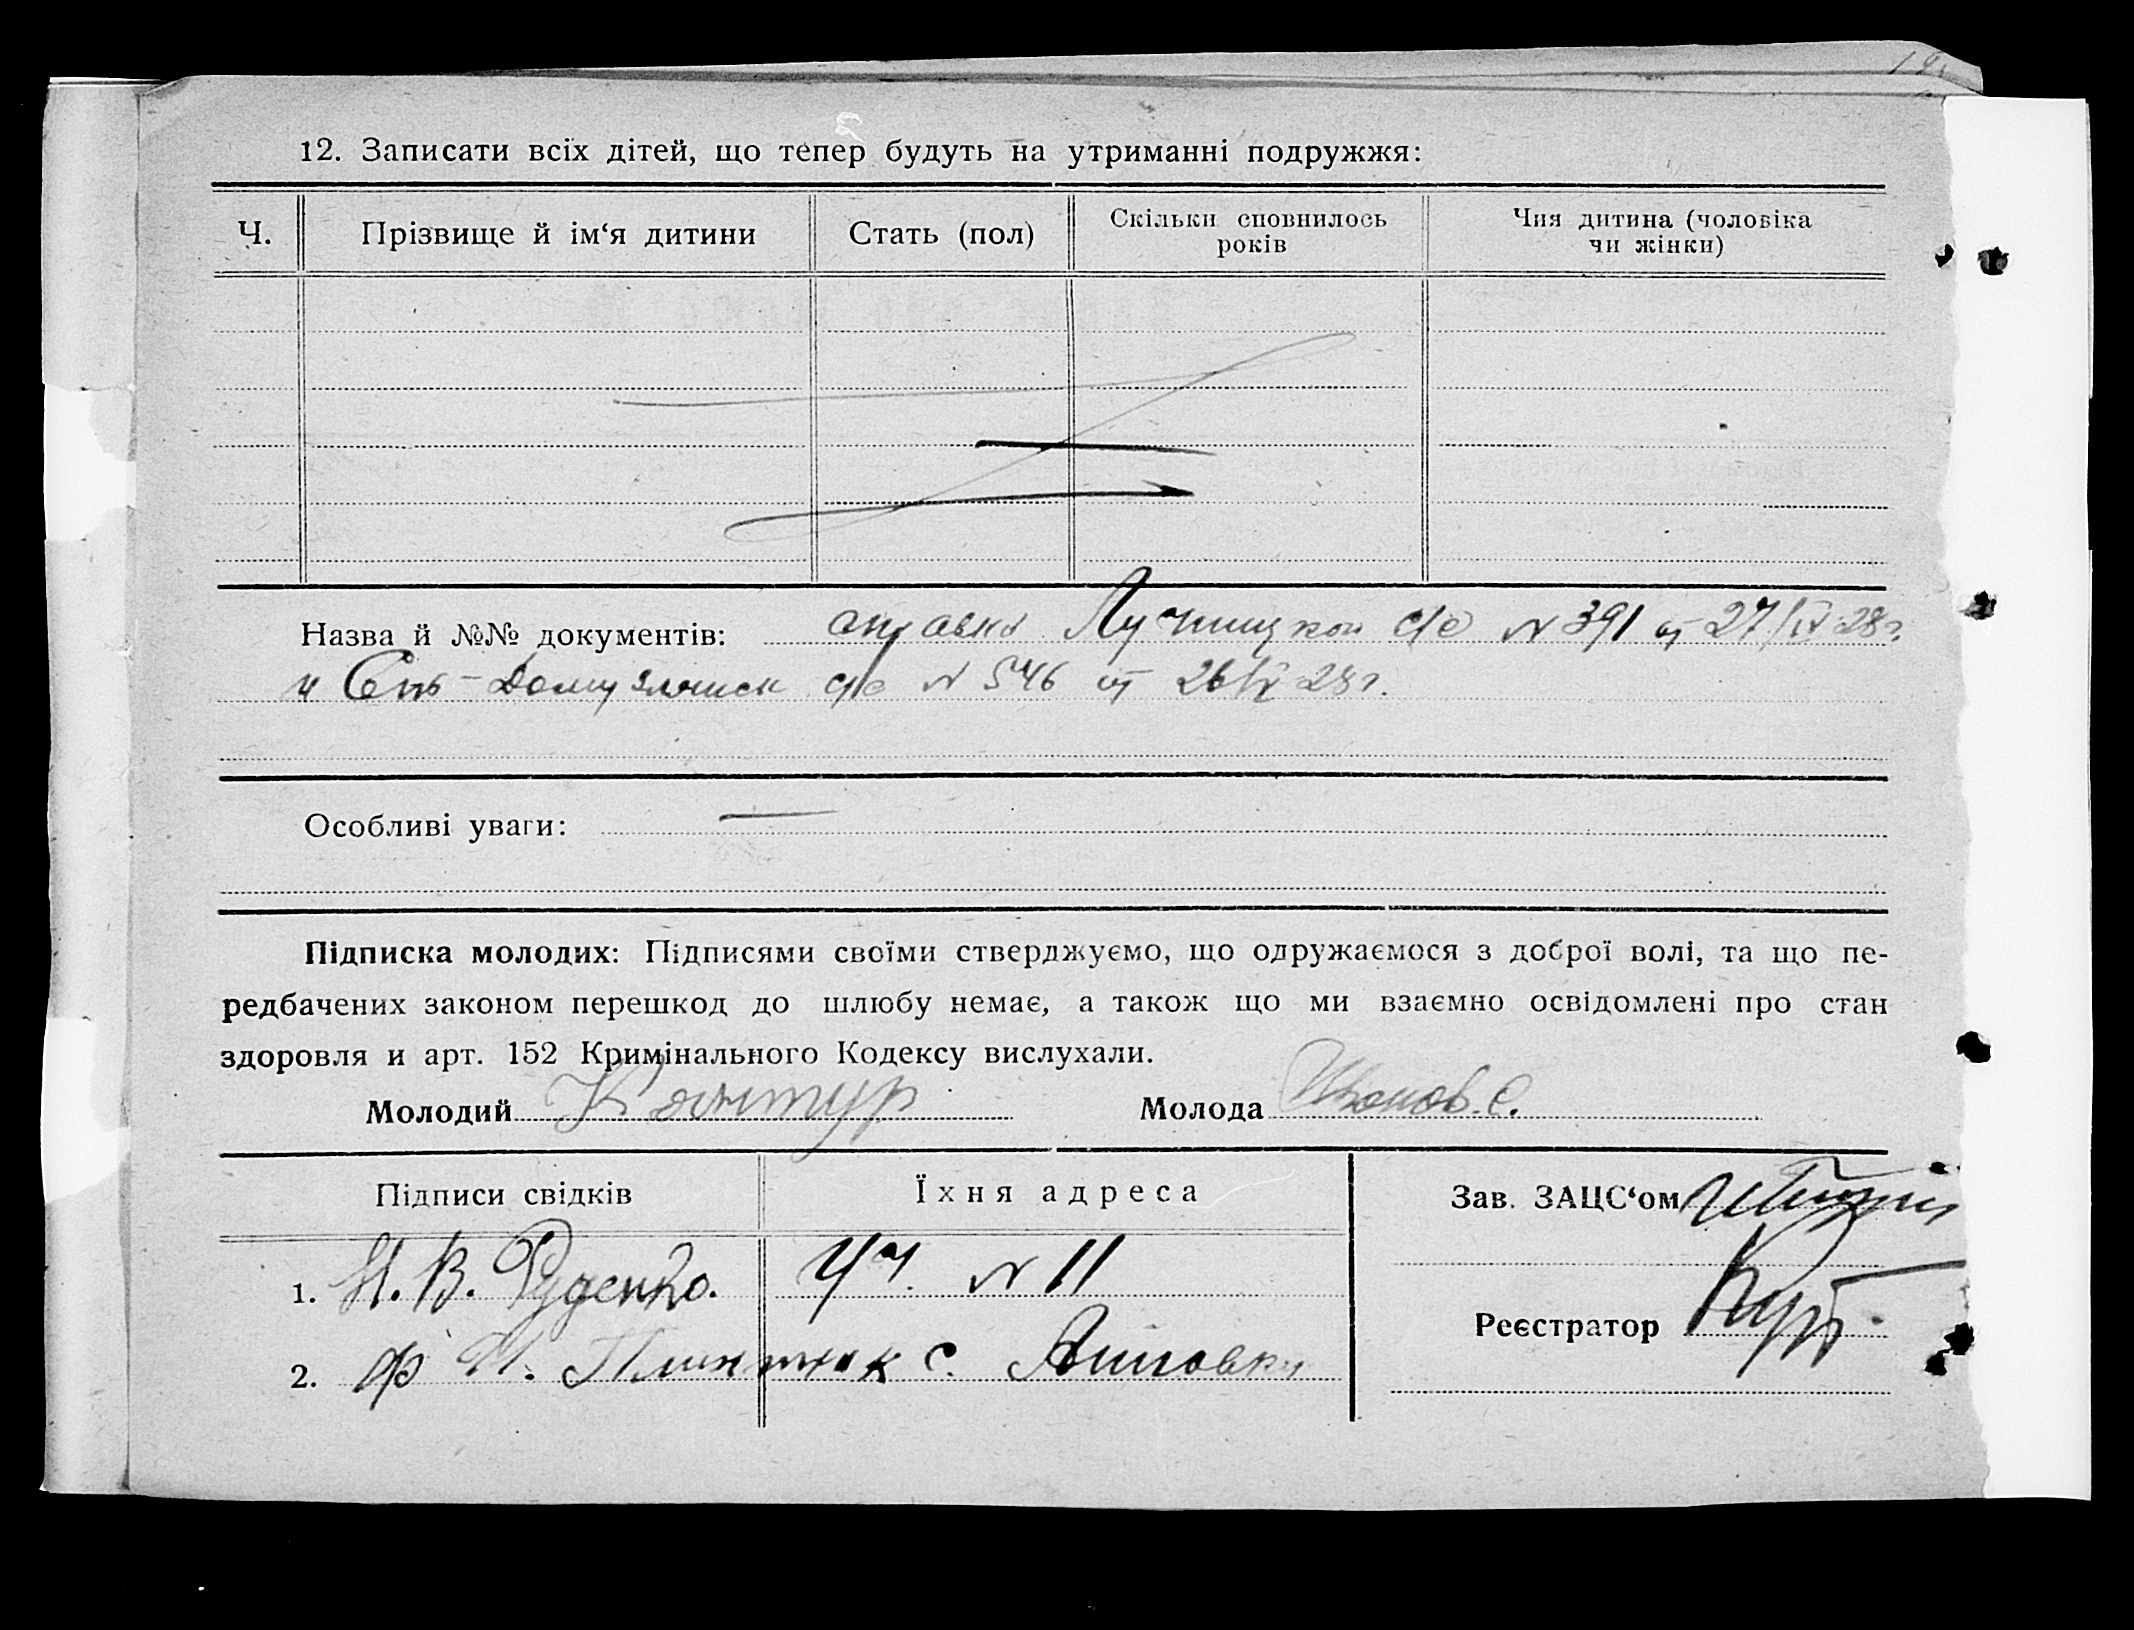 12. Записати всіх дітей, що тепер будуть на утриманні подружжя:
Ч.
Прізвище й ім‘я дитини
Стать (пол)
Скільки сповнилось
років
Чия дитина (чоловіка
чи жінки)
Назва й №№ документів: справки с/с N 391 от 27/IV 28г.
и с/с N 546 от 26/IV 28г.
Особливі уваги: —
Підписка молодих: Підписями своїми стверджуємо, що одружаємося з доброї волі, та що пе-
редбачених законом перешкод до шлюбу немає, а також що ми взаємно освідомлені про стан
здоровля и арт. 152 Кримінального Кодексу вислухали.
Молодий Кантур Молода
Підписи свідків
Їхня адреса
Зав. ЗАЦС‘ом
1. Н. В. Руденко. Уч. N 11
Реєстратор
2. с.